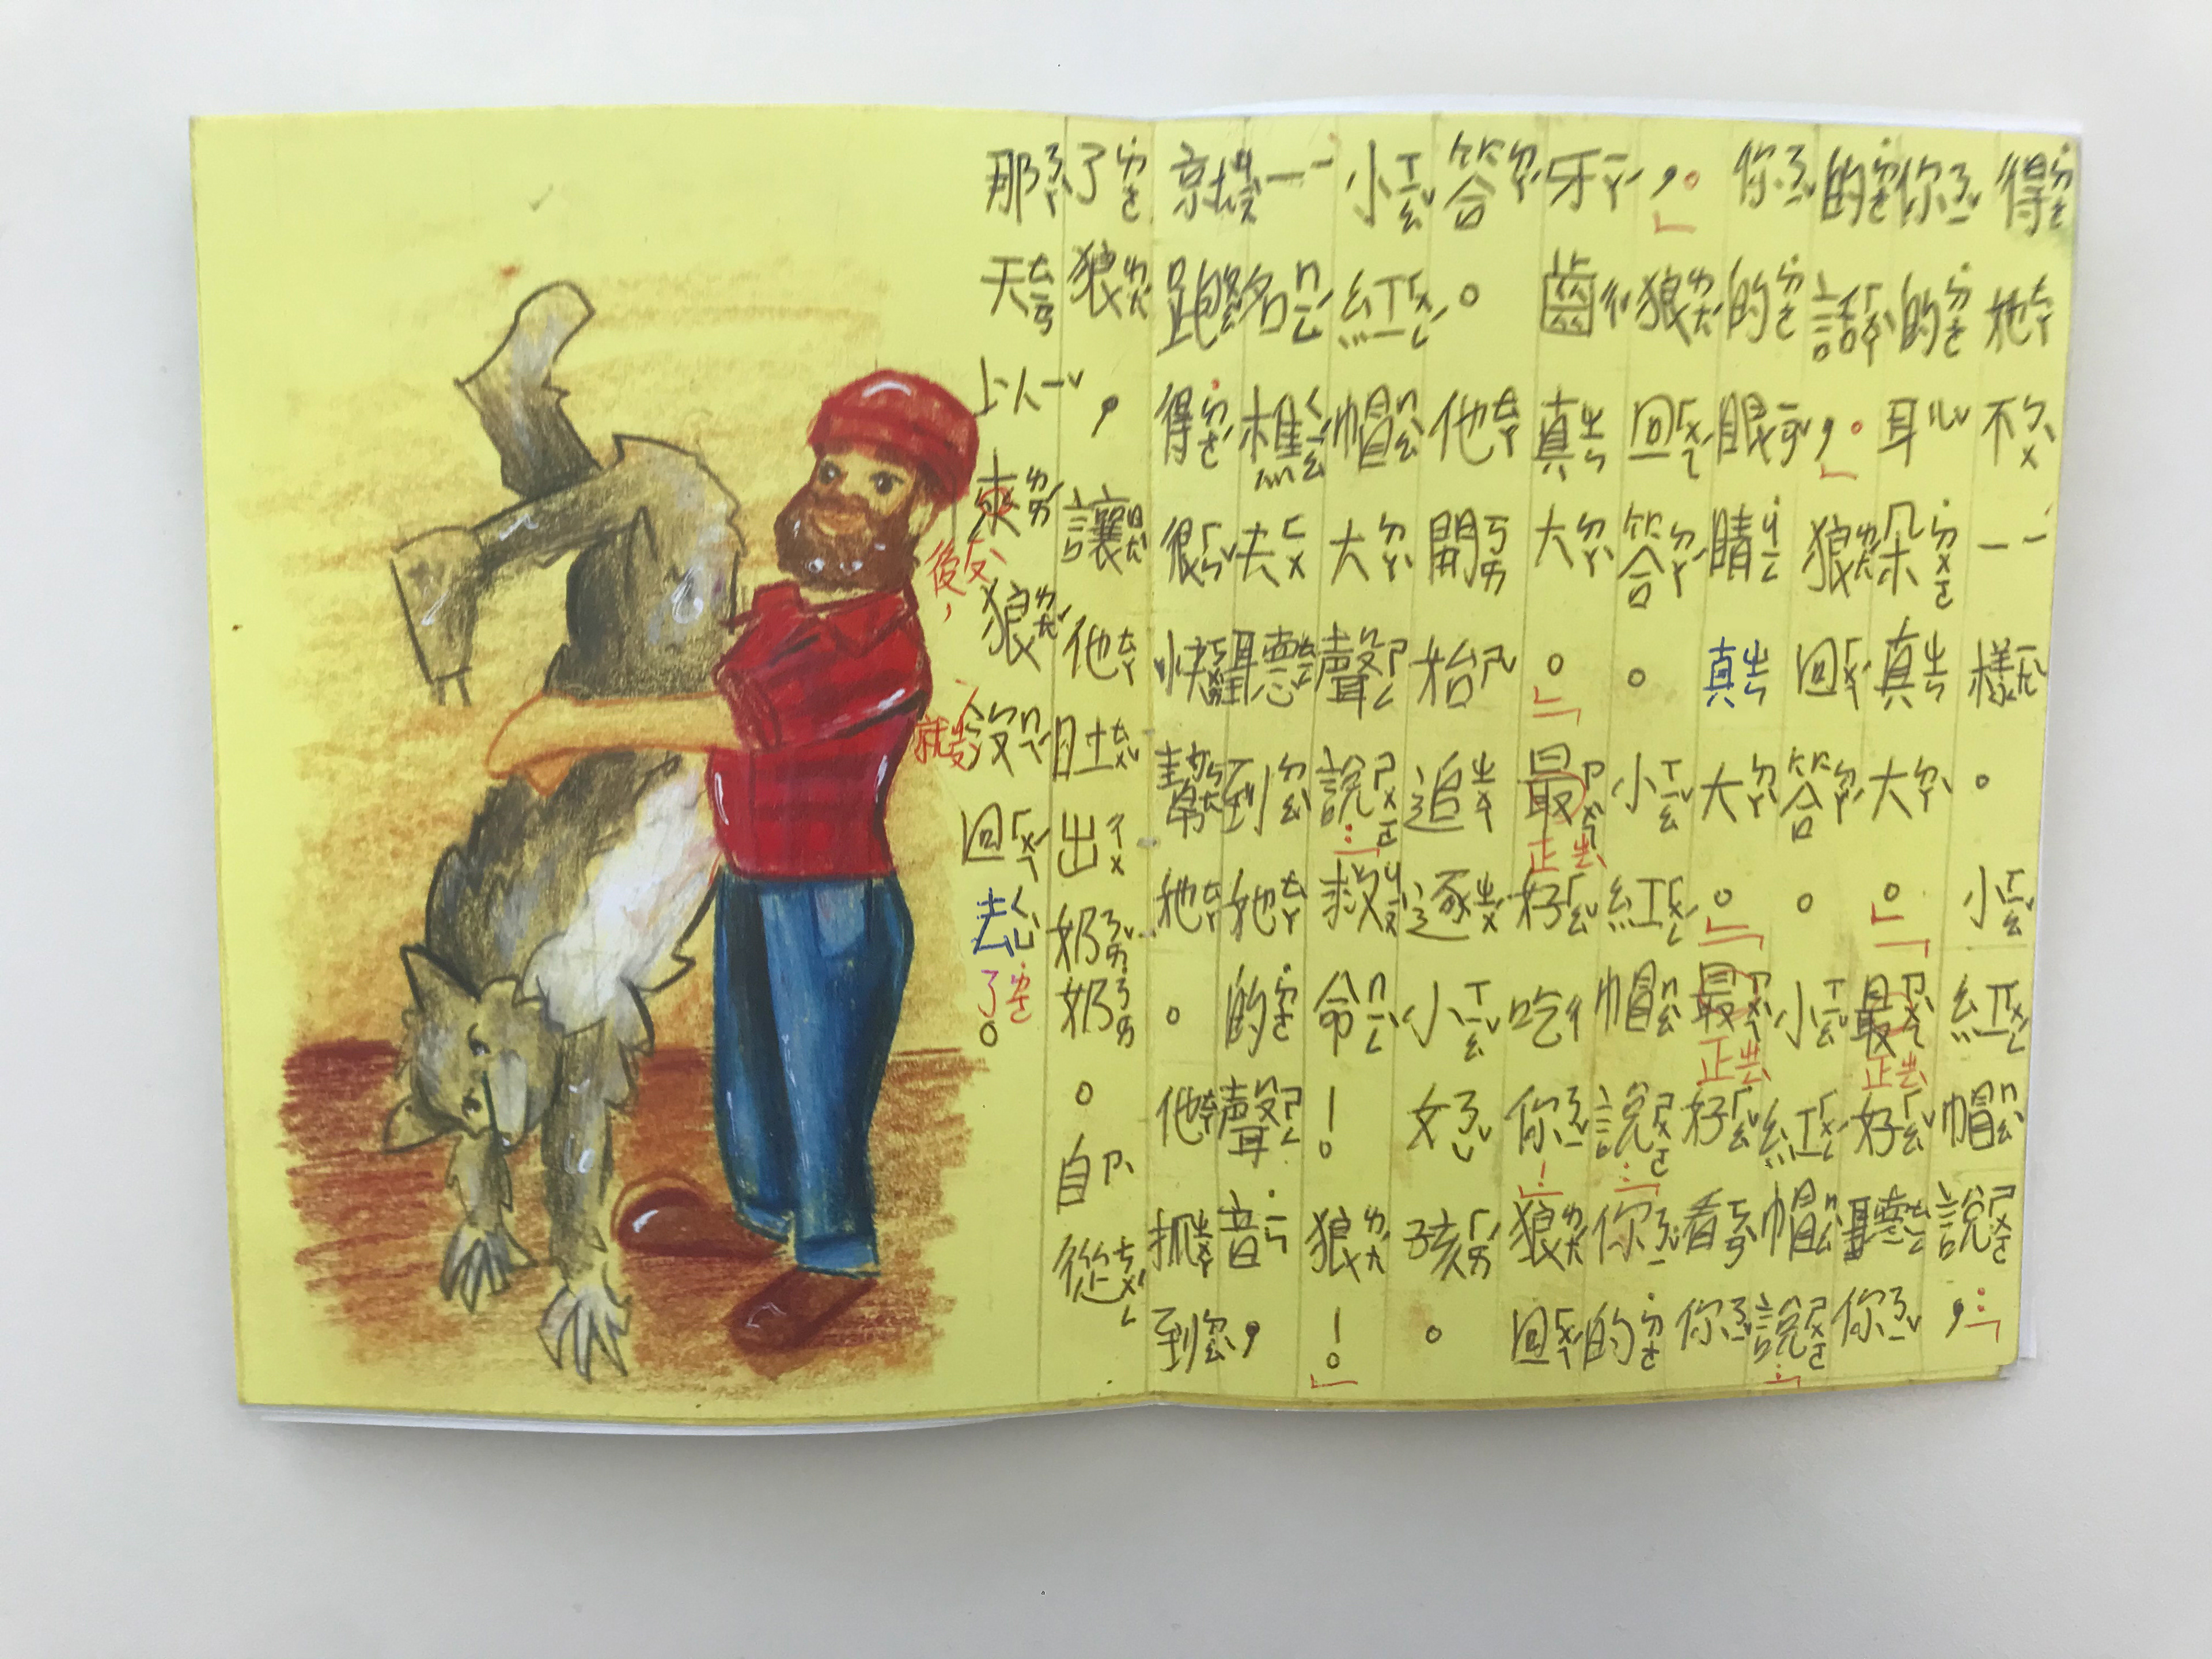 得她不一樣。小紅帽說,:「
你的耳朵真大。」「最正好聽你
的話,。」狼回答。小紅帽說:「
你的眼睛真大。」「最正好看你
,。」狼回答。小紅帽說:「你的
牙齒真大。」「最正好吃你!」狼回
答。他開始追逐小女孩。
小紅帽大聲說:「救命!狼!。」
一名樵夫聽到她的聲音
就跑得很快幫她。他抓到,
了狼,讓他吐出奶奶。自從
那天以來後,狼就沒回去了。